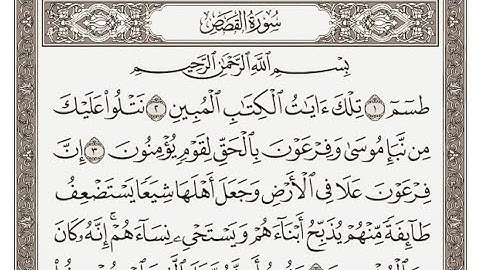 سُورَةُ القَصَصِ
بِسْمِ ٱللَّهِ ٱلرَّحْمَٰنِ ٱلرَّحِيمِ
طسٓمٓ ۝١ تِلْكَ ءَايَٰتُ ٱلْكِتَٰبِ ٱلْمُبِينِ ۝٢ نَتْلُوا۟ عَلَيْكَ
مِن نَّبَإِ مُوسَىٰ وَفِرْعَوْنَ بِٱلْحَقِّ لِقَوْمٍ يُؤْمِنُونَ ۝٣ إِنَّ
فِرْعَوْنَ عَلَا فِى ٱلْأَرْضِ وَجَعَلَ أَهْلَهَا شِيَعًا يَسْتَضْعِفُ
طَآئِفَةً مِّنْهُمْ يُذَبِّحُ أَبْنَآءَهُمْ وَيَسْتَحْىِۦ نِسَآءَهُمْ ۚ إِنَّهُۥ كَانَ